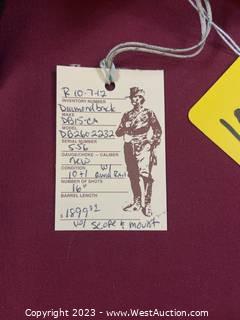 R 10-7-12
INVENTORY NUMBER
Diamondback
MAKE
DB15-CA
MODEL
DB2602232
SERIAL NUMBER
5.56
GAUGE/CHOKE - CALIBER
New w/
CONDITION
10+1 Quad Rail
NUMBER OF SHOTS
16"
BARREL LENGTH
$1899
w/ scope & mount
Copyright 2023 - www.WestAuction.com